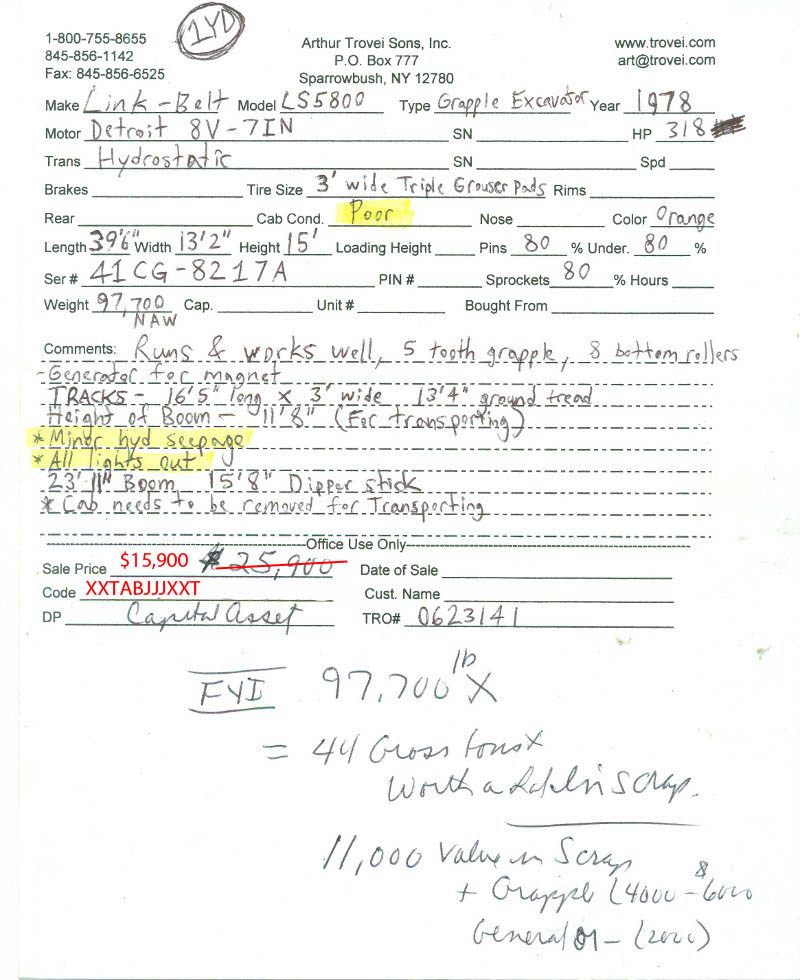 1YD
1-800-755-8655
845-856-1142
Fax: 845-856-6525
Arthur Trovei Sons, Inc.
P.O. Box 777
Sparrowbush, NY 12780
www.trovei.com
art@trovei.com
Make Link-Belt Model LS5800 Type Grapple Excavator Year 1978
Motor Detroit 8V-71N SN HP 318
Trans Hydrostatic SN Spd
Brakes Tire Size 3' wide Triple Grouser Pads Rims
Rear Cab Cond. Poor Nose Color Orange
Length 39'6" Width 13'2" Height 15' Loading Height Pins 80 % Under. 80 %
Ser # 41CG-8217A PIN # Sprockets 80 % Hours
Weight 97,700 Cap. Unit # Bought From
NAW
Comments: Runs & works well, 5 tooth grapple, 8 bottom rollers
-Generator for magnet
TRACKS - 16'5" long x 3' wide 13'4" ground tread
Height of Boom - 11'8" (For transporting)
* Minor hyd seepage
* All lights out
23'11" Boom 15'8" Dipper stick
* Cab needs to be removed for Transporting
Office Use Only
Sale Price $15,900 $25,900 Date of Sale
Code XXTABJJJXXT Cust. Name
DP Capital Asset TRO# 0623141
FYI 97,700 lb X
= 44 Gross tons x
Worth a in scrap.
11,000 Value in Scrap
+ Grapple (4000-6000
8
Generator - (2000)